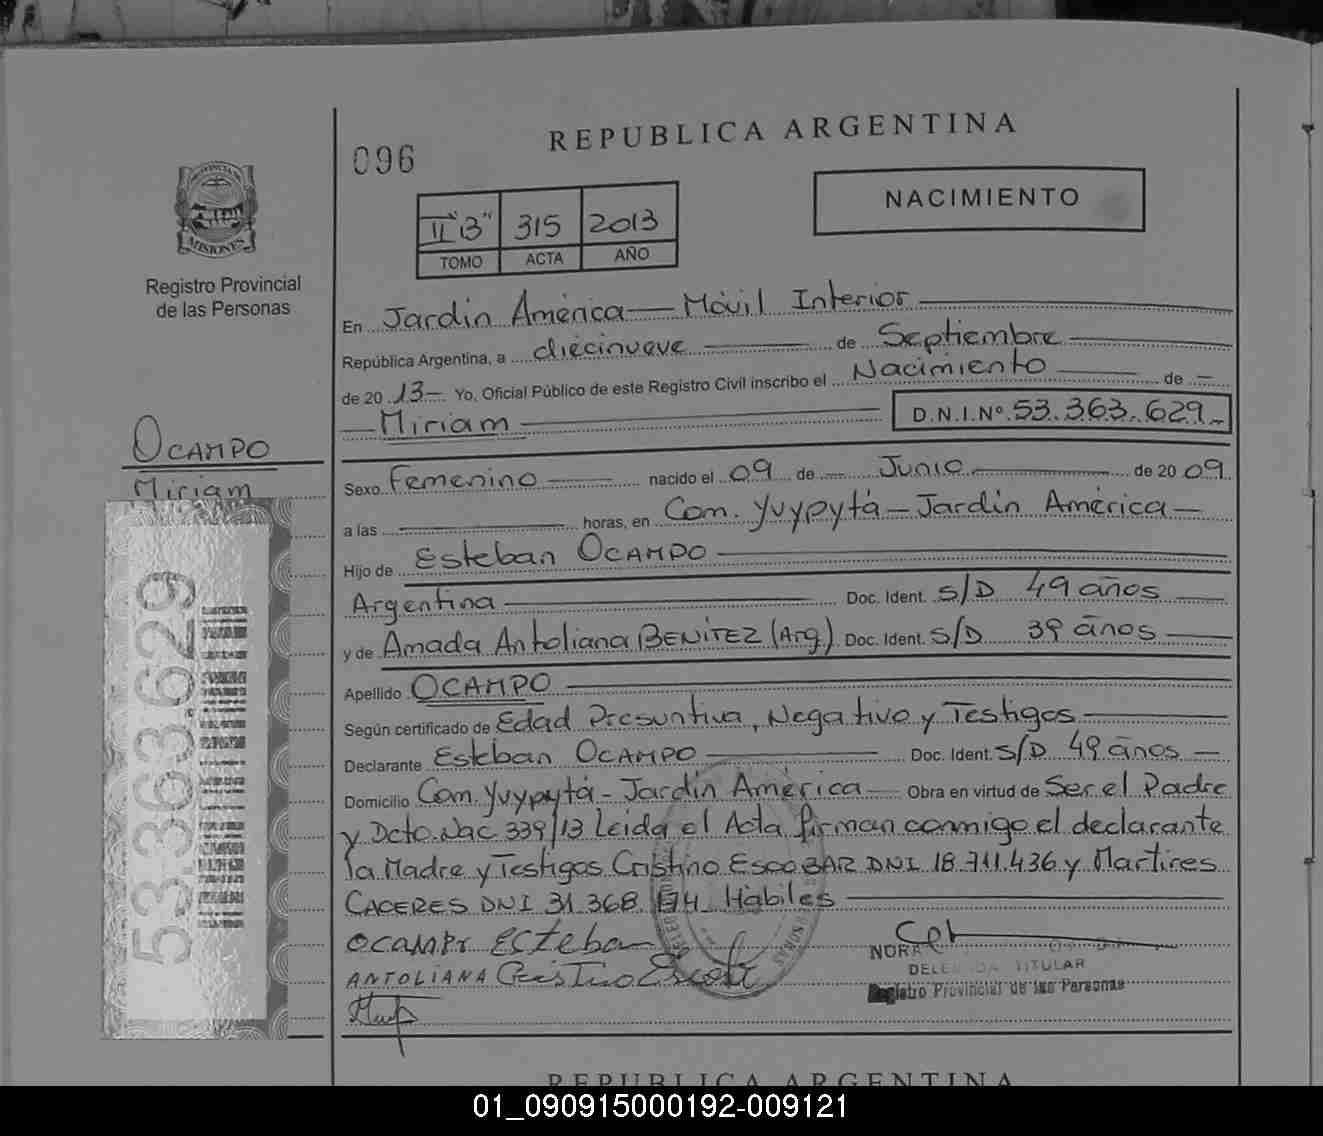 REPUBLICA ARGENTINA
096
NACIMIENTO
II "B" 315 2013
TOMO ACTA AÑO
PROVINCIA DE
MISIONES
Registro Provincial
de las Personas
En Jardín América — Móvil Interior
República Argentina, a diecinueve de Septiembre
de 2013 - Yo, Oficial Público de este Registro Civil inscribo el Nacimiento de -
Miriam D.N.I.Nº 53.363.629
OCAMPO
Miriam
Sexo Femenino nacido el 09 de Junio de 2009
a las horas, en Com. Yvypytá - Jardín América -
Hijo de Esteban OCAMPO
Argentina Doc. Ident. S/D 49 años
y de Amada Antoliana BENITEZ (Arg) Doc. Ident. S/D 39 años
Apellido OCAMPO
Según certificado de Edad Presuntiva, Negativo y Testigos
Declarante Esteban OCAMPO Doc. Ident. S/D 49 años
Domicilio Com. Yvypytá - Jardín América Obra en virtud de Ser el Padre
y Dcto. Nac 339/13 Leida el Acta firman conmigo el declarante
la Madre y Testigos Cristino ESCOBAR DNI 18.711.436 y Martires
CACERES DNI 31.368. Hábiles
OCAMPO ESTEban
ANTOLIANA
NORA
DELEGADA TITULAR
Registro Provincial de las Personas
53.363.629
REPUBLICA ARGENTINA
01_090915000192-009121